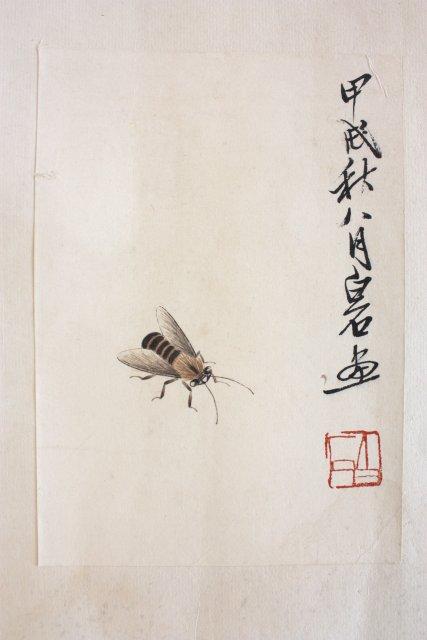 甲戌秋八月白石画